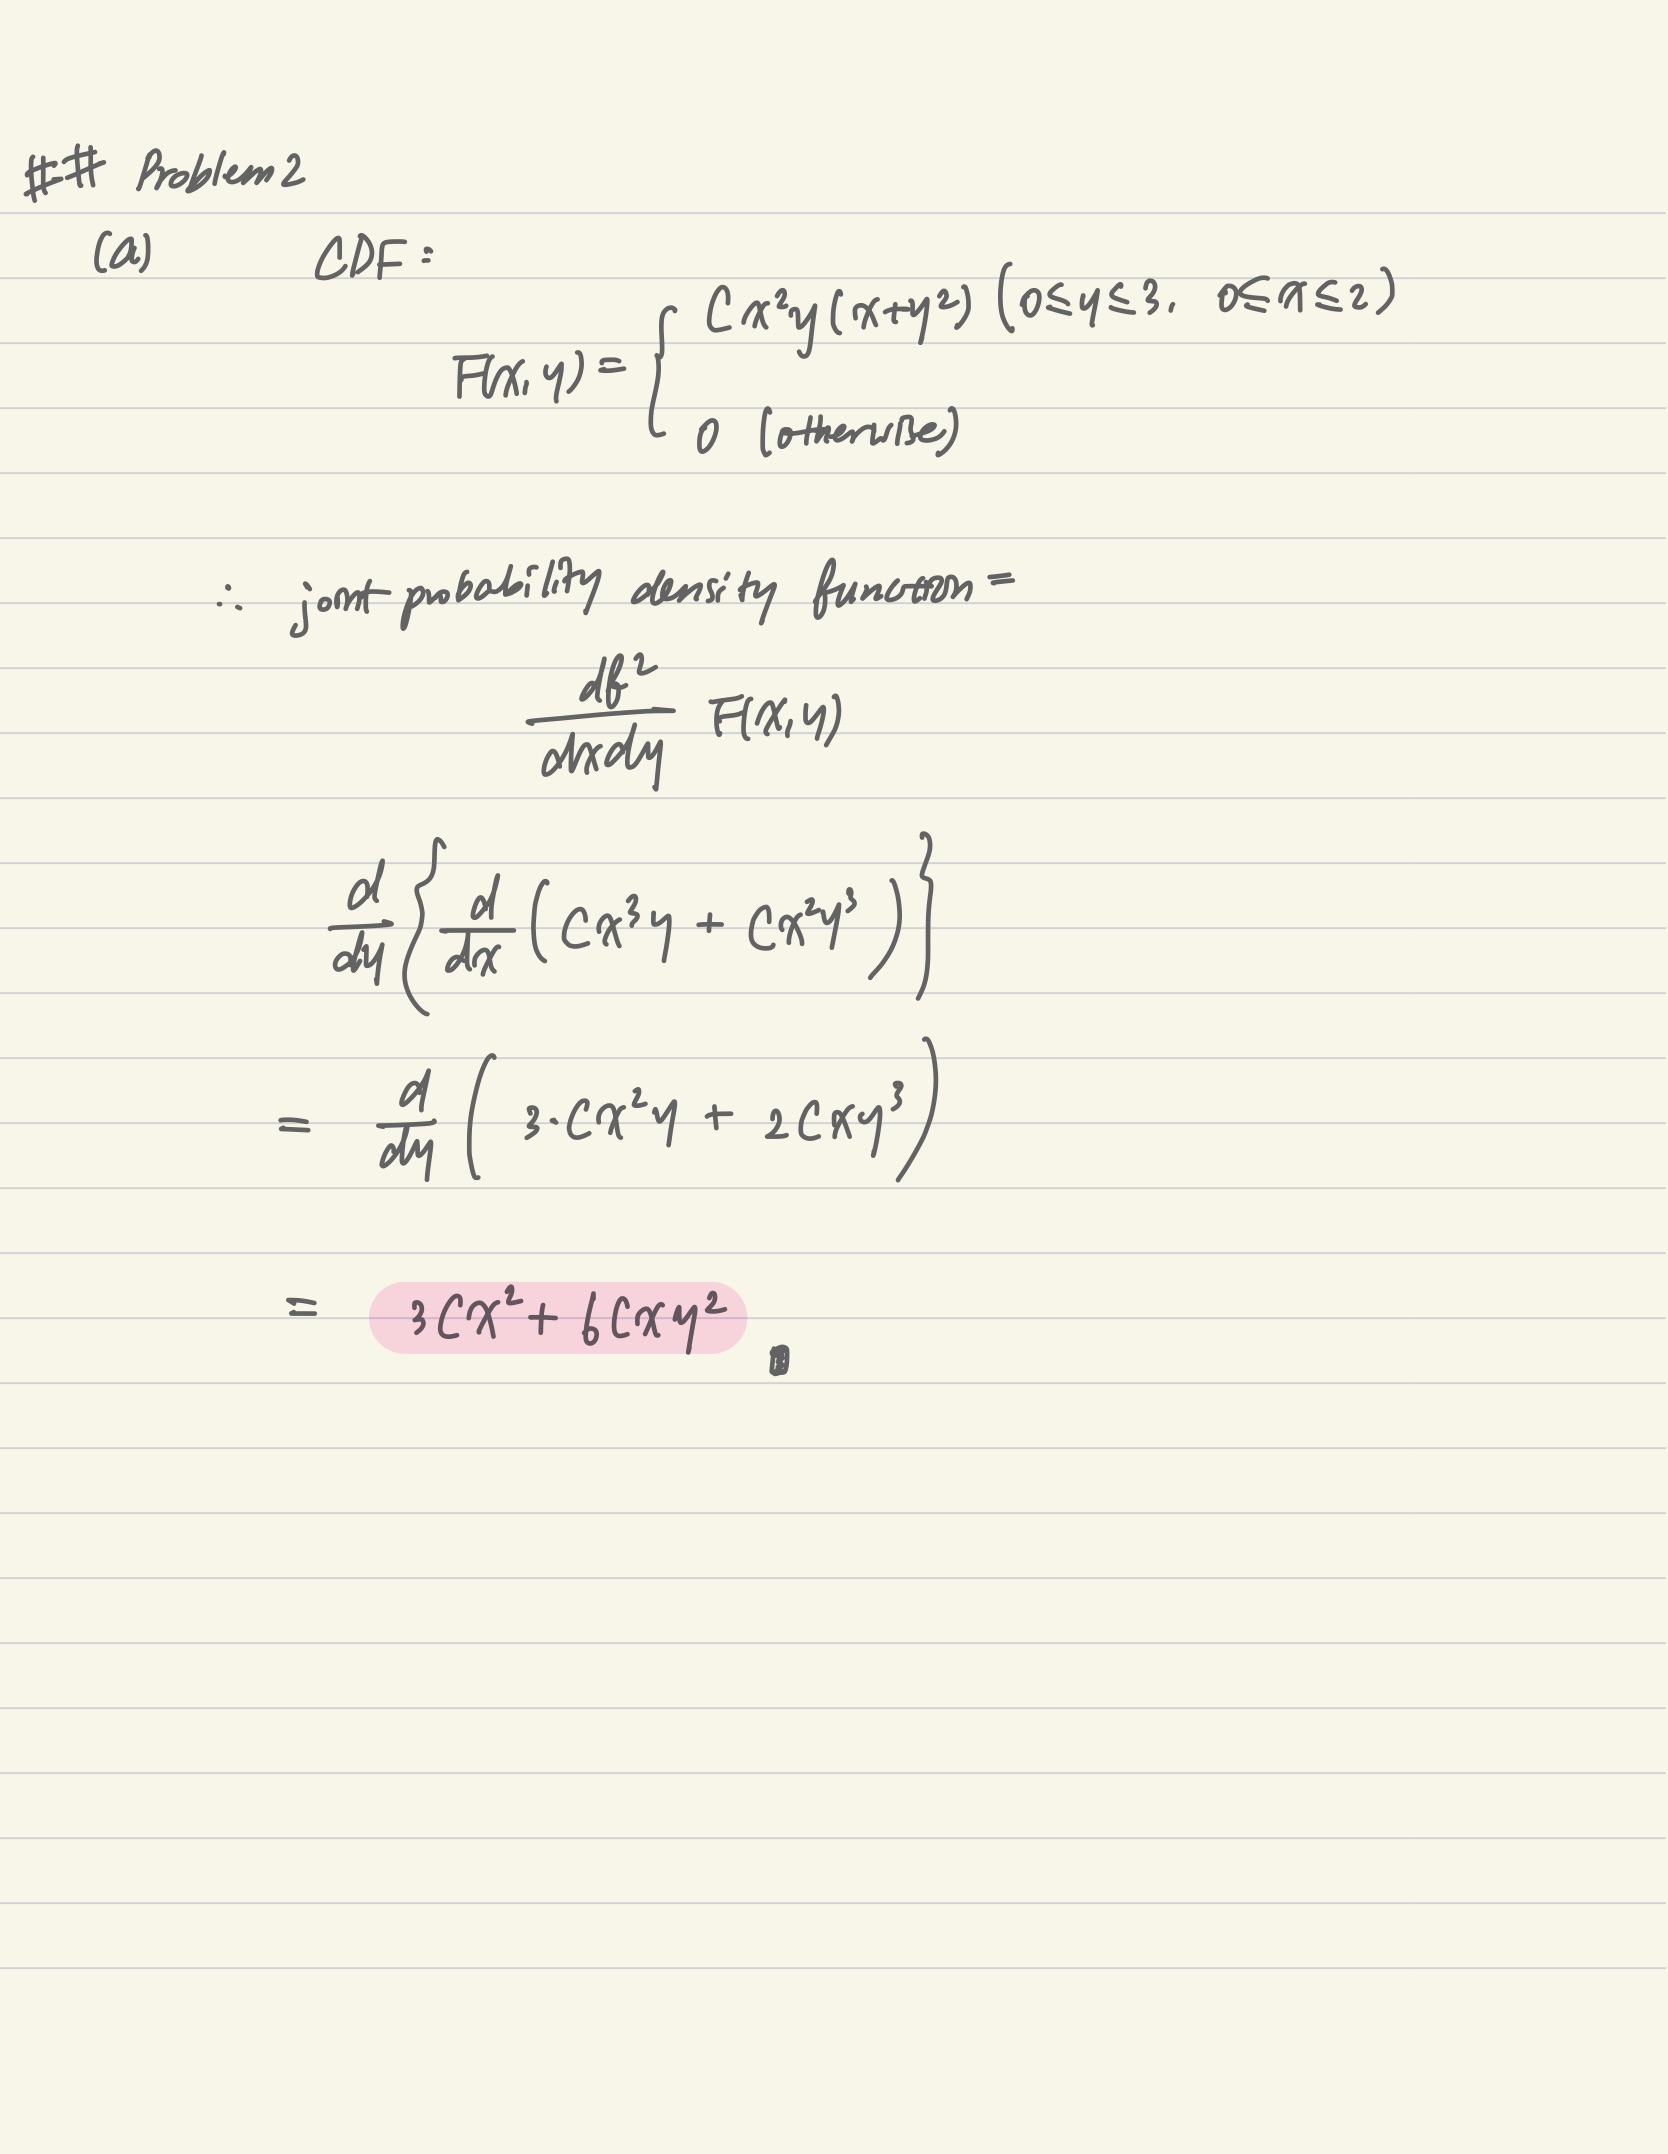 ## Problem 2
(a) CDF:
F(x, y) = { Cx²y(x+y²) (0≤y≤3, 0≤x≤2)
0 (otherwise)
∴ joint probability density function =
df²/dxdy F(x, y)
d/dy { d/dx ( Cx³y + Cx²y³ ) }
= d/dy ( 3·Cx²y + 2Cxy³ )
= 3Cx² + 6Cxy²